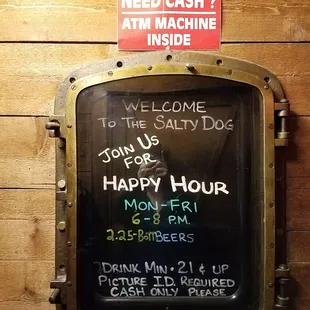 NEED CASH?
ATM MACHINE
INSIDE
WELCOME
TO THE SALTY DOG
JOIN US
FOR
HAPPY HOUR
MON-FRI
6-8 P.M.
2.25-BOTTBEERS
2DRINK MIN • 21 & UP
PICTURE I.D. REQUIRED
CASH ONLY PLEASE